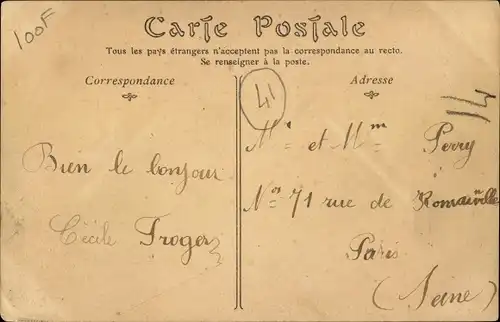 100F
Carte Postale
Tous les pays étrangers n'acceptent pas la correspondance au recto.
Se renseigner à la poste.
Correspondance
Bien le bonjour
Cécile Troger
Adresse
41
Mr et Mme Perry
Nos 71 rue de Romainville
Paris
(Seine)